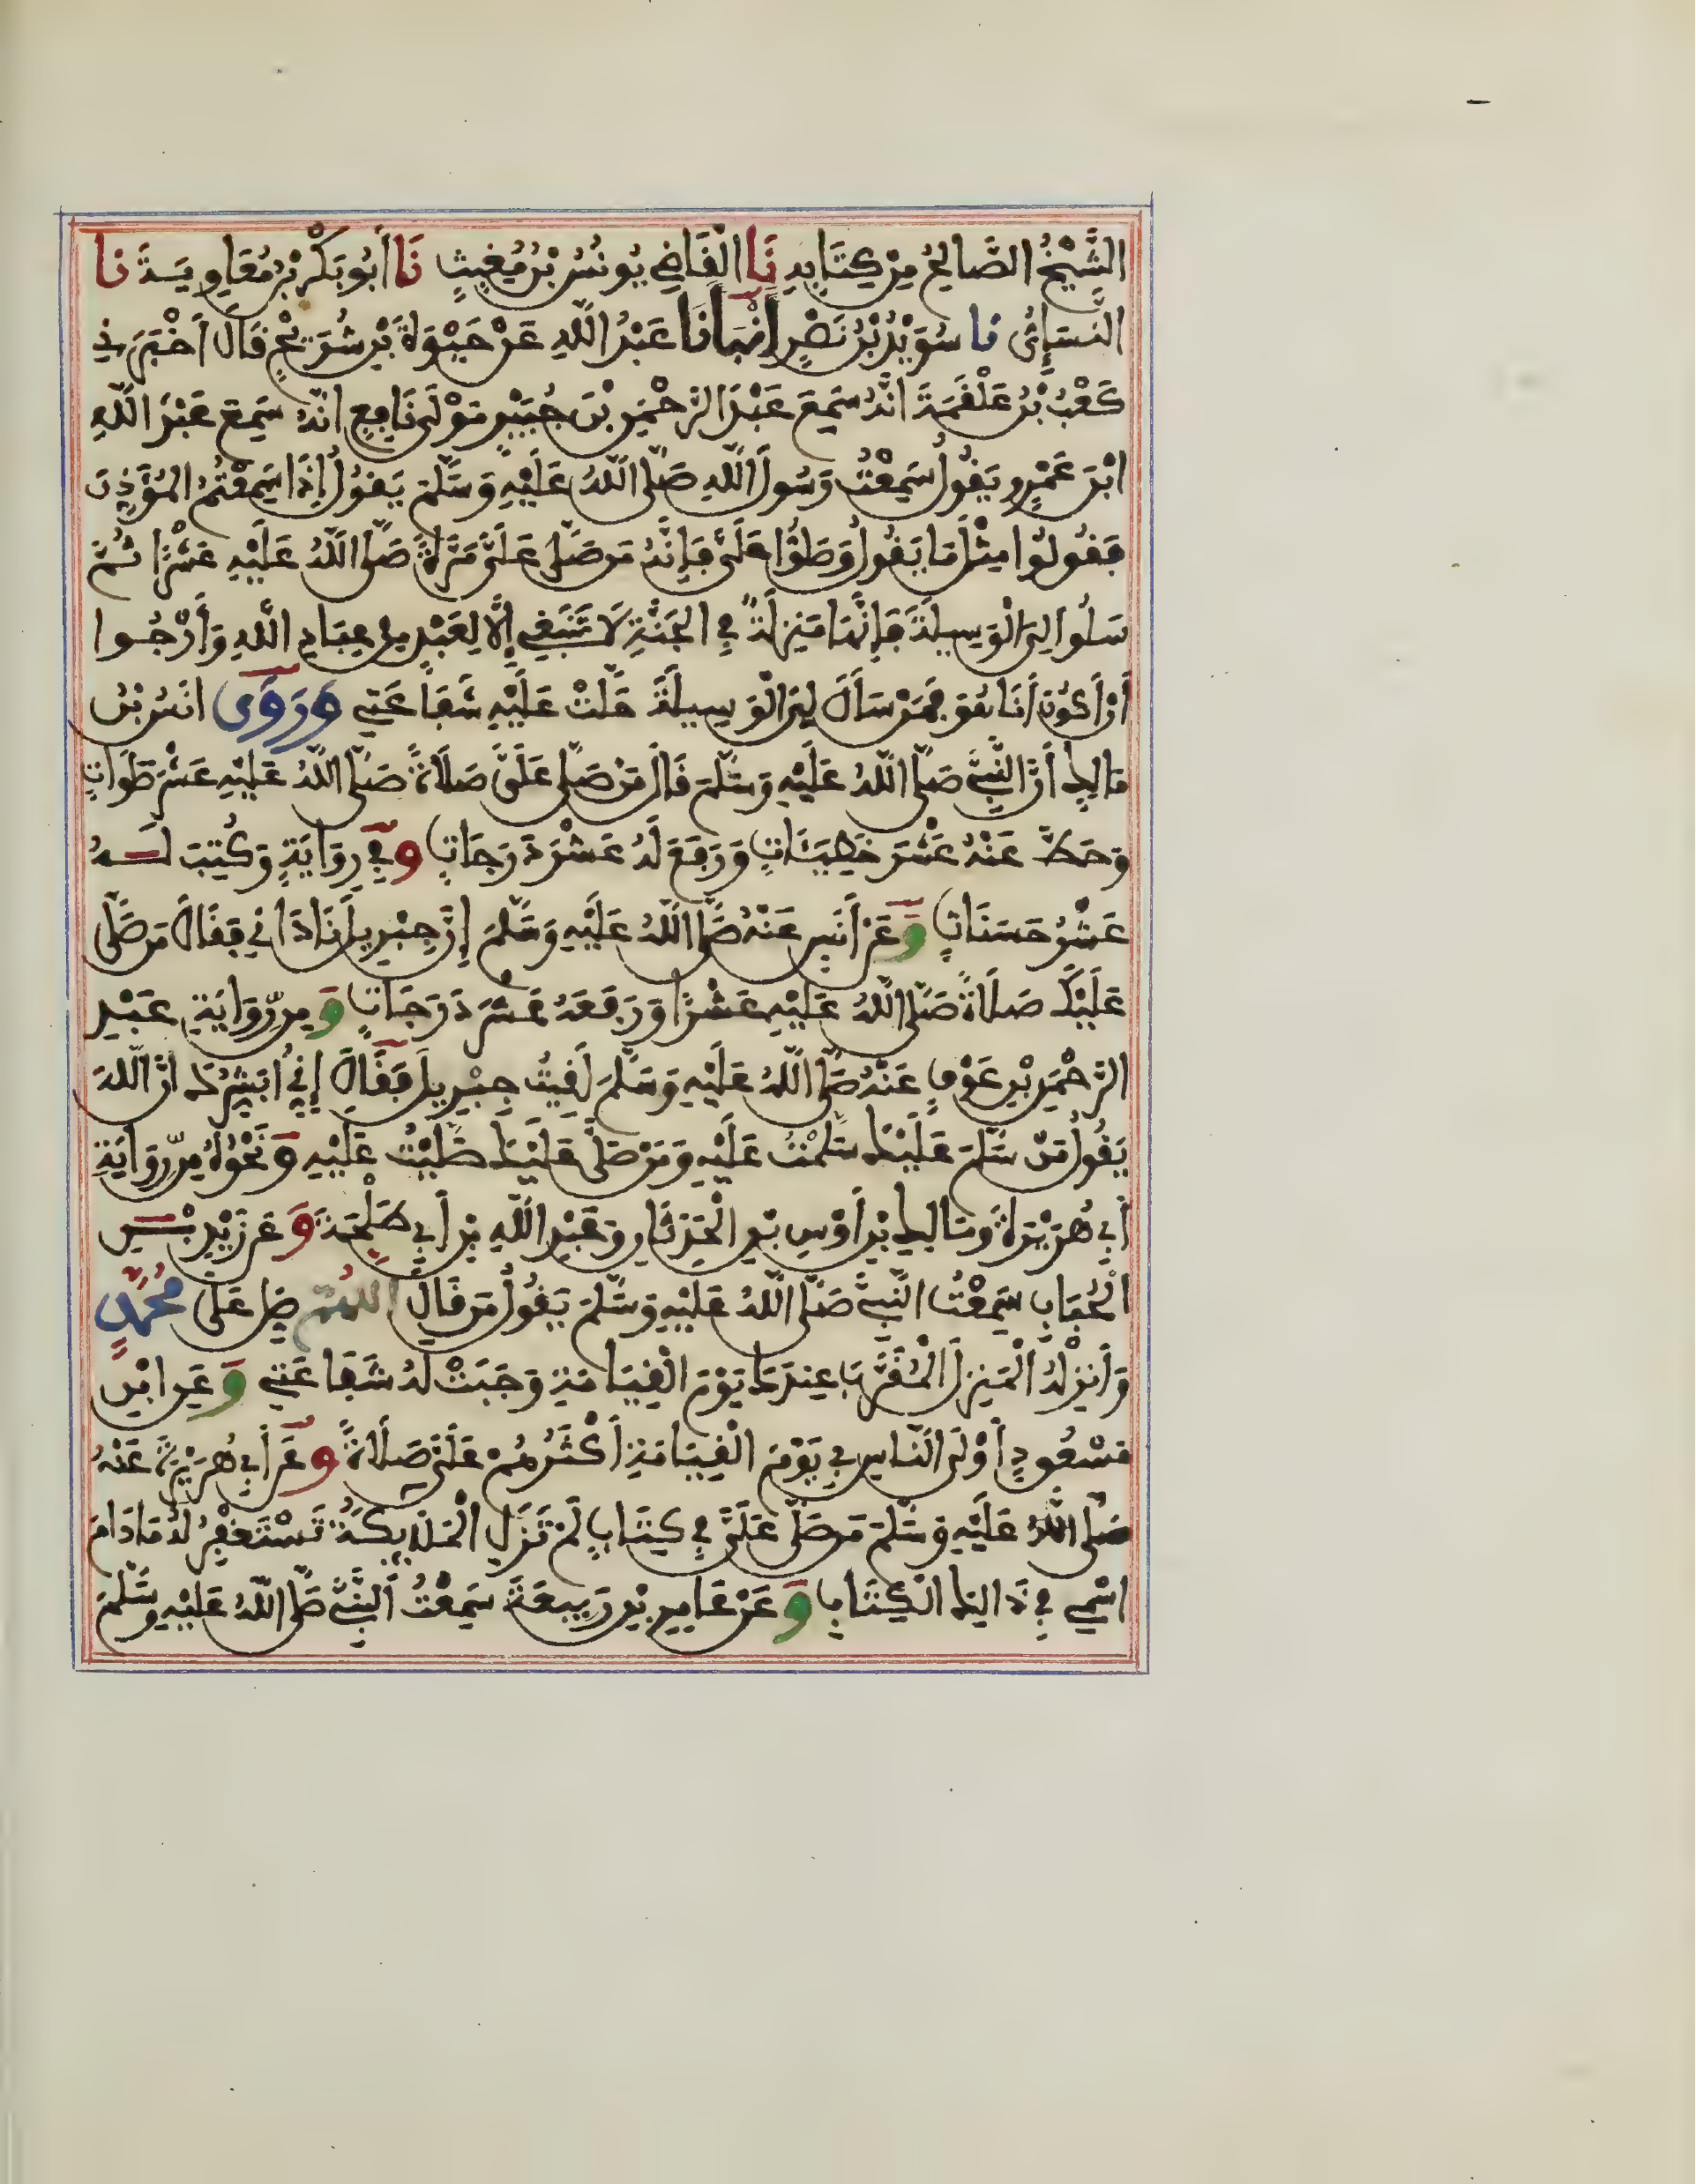 الشَّيْخُ الصَّالِحُ مِنْ كِتَابِهِ نَا الْقَاضِي يُونُسُ بْنُ مُغِيثٍ نَا أَبُو بَكْرِ بْنُ مُعَاوِيَةَ نا
النَّسَائِيُّ نا سُوَيْدُ بْنُ نَصْرٍ انْبَانَا عَبْدُ اللَّهِ عَنْ حَيْوَةَ بْنِ شُرَيْحٍ قَالَ أَخْبَرَنِي
كَعْبُ بْنُ عَلْقَمَةَ انَّهُ سَمِعَ عَبْدَ الرَّحْمَنِ بْنَ جُبَيْرٍ مَوْلَى نَافِعٍ انَّهُ سَمِعَ عَبْدَ اللَّهِ
ابْنَ عَمْرٍو يَقُولُ سَمِعْتُ رَسُولَ اللَّهِ صَلَّى اللَّهُ عَلَيْهِ وَسَلَّمَ يَقُولُ إِذَا سَمِعْتُمُ الْمُؤَذِّنَ
فَقُولُوا مِثْلَ مَا يَقُولُ وَصَلُّوا عَلَيَّ فَإِنَّهُ مَن صَلَّى عَلَيَّ مَرَّةً صَلَّى اللَّهُ عَلَيْهِ عَشْرًا ثُمَّ
سَلُوا لِيَ الْوَسِيلَةَ فَإِنَّهَا مَنْزِلَةٌ فِي الْجَنَّةِ لَا تَنْبَغِي إِلَّا لِعَبْدٍ مِن عِبَادِ اللَّهِ وَأَرْجُوا
أَنْ أَكُونَ أَنَا هُوَ فَمَنْ سَأَلَ لِيَ الْوَسِيلَةَ حَلَّتْ عَلَيْهِ شَفَاعَتِي وَرَوَى انَسُ بْنُ
مَالِكٍ أَنَّ النَّبِيَّ صَلَّى اللَّهُ عَلَيْهِ وَسَلَّمَ قَالَ مَنْ صَلَّى عَلَيَّ صَلَاةً صَلَّى اللَّهُ عَلَيْهِ عَشْرَ صَلَوَاتٍ
وَحَطَّ عَنْهُ عَشْرَ خَطِيئَاتٍ وَرَفَعَ لَهُ عَشْرَ دَرَجَاتٍ وَفِي رِوَايَةٍ وَكُتِبَ لَهُ
عَشْرُ حَسَنَاتٍ وَعَنْ أَنَسٍ عَنْهُ صَلَّى اللَّهُ عَلَيْهِ وَسَلَّمَ إِنَّ جِبْرِيلَ نَادَانِي فَقَالَ مَن صَلَّى
عَلَيْكَ صَلَاةً صَلَّى اللَّهُ عَلَيْهِ عَشْرًا وَرَفَعَهُ عَشْرَ دَرَجَاتٍ وَمِن رِّوَايَةِ عَبْدِ
الرَّحْمَنِ بْنِ عَوْفٍ عَنْهُ صَلَّى اللَّهُ عَلَيْهِ وَسَلَّمَ لَقِيتُ جِبْرِيلَ فَقَالَ إِنِّي أُبَشِّرُكَ انَّ اللَّهَ
يَقُولُ مَن سَلَّمَ عَلَيْكَ سَلَّمْتُ عَلَيْهِ وَمَنْ صَلَّى عَلَيْكَ صَلَّيْتُ عَلَيْهِ وَنَحْوُهُ مِن رِّوَايَةِ
أَبِي هُرَيْرَةَ وَمَالِكِ بْنِ أَوْسِ بْنِ الْحَدَثَانِ وَعَبْدِ اللَّهِ بْنِ أَبِي طَلْحَةَ وَعَن زَيْدِ بْنِ
الْحُبَابِ سَمِعْتُ النَّبِيَّ صَلَّى اللَّهُ عَلَيْهِ وَسَلَّمَ يَقُولُ مَن قَالَ اللهُمَّ صَلِّ عَلَى مُحَمَّدٍ
وَأَنزِلْهُ الْمَنزِلَ الْمُقَرَّبَ عِندَكَ يَوْمَ الْقِيَامَةِ وَجَبَتْ لَهُ شَفَاعَتِي وَعَنِ ابْنِ
مَسْعُودٍ أَوْلَى النَّاسِ بِي يَوْمَ الْقِيَامَةِ أَكْثَرُهُمْ عَلَيَّ صَلَاةً وَعَنْ أَبِي هُرَيْرَةَ عَنْهُ
صَلَّى اللَّهُ عَلَيْهِ وَسَلَّمَ مَن صَلَّى عَلَيَّ فِي كِتَابٍ لَمْ تَزَلِ الْمَلَائِكَةُ تَسْتَغْفِرُ لَهُ مَا دَامَ
اسْمِي فِي ذَالِكَ الْكِتَابِ وَعَنْ عَامِرِ بْنِ رَبِيعَةَ سَمِعْتُ النَّبِيَّ صَلَّى اللَّهُ عَلَيْهِ وَسَلَّمَ